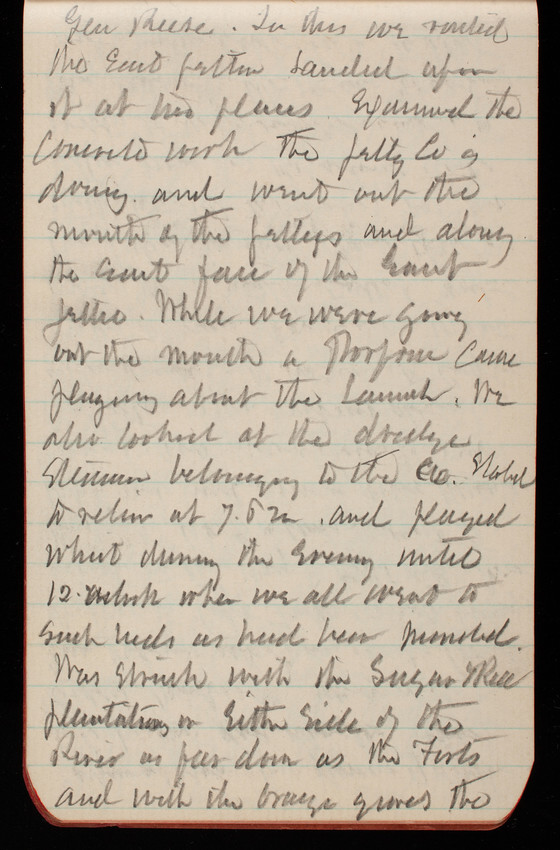 Gen Reese. In this we visited
the East Jettie landed upon
it at two places. Examined the
Concrete work the Jetty Co is
doing and went out the
mouth of the Jetties and along
the East face of the East
Jettie. While we were going
out the mouth a Porpoise came
playing about the Launch. We
also looked at the dredge
Steamer belonging to the Co. Started
to return at 7.52 and played
Whist during the Evening until
12 oclock when we all went to
such beds as had been provided.
Was struck with the Sugar & Rice
plantations on Either Side of the
River as far down as the Forts
and with the Orange groves the